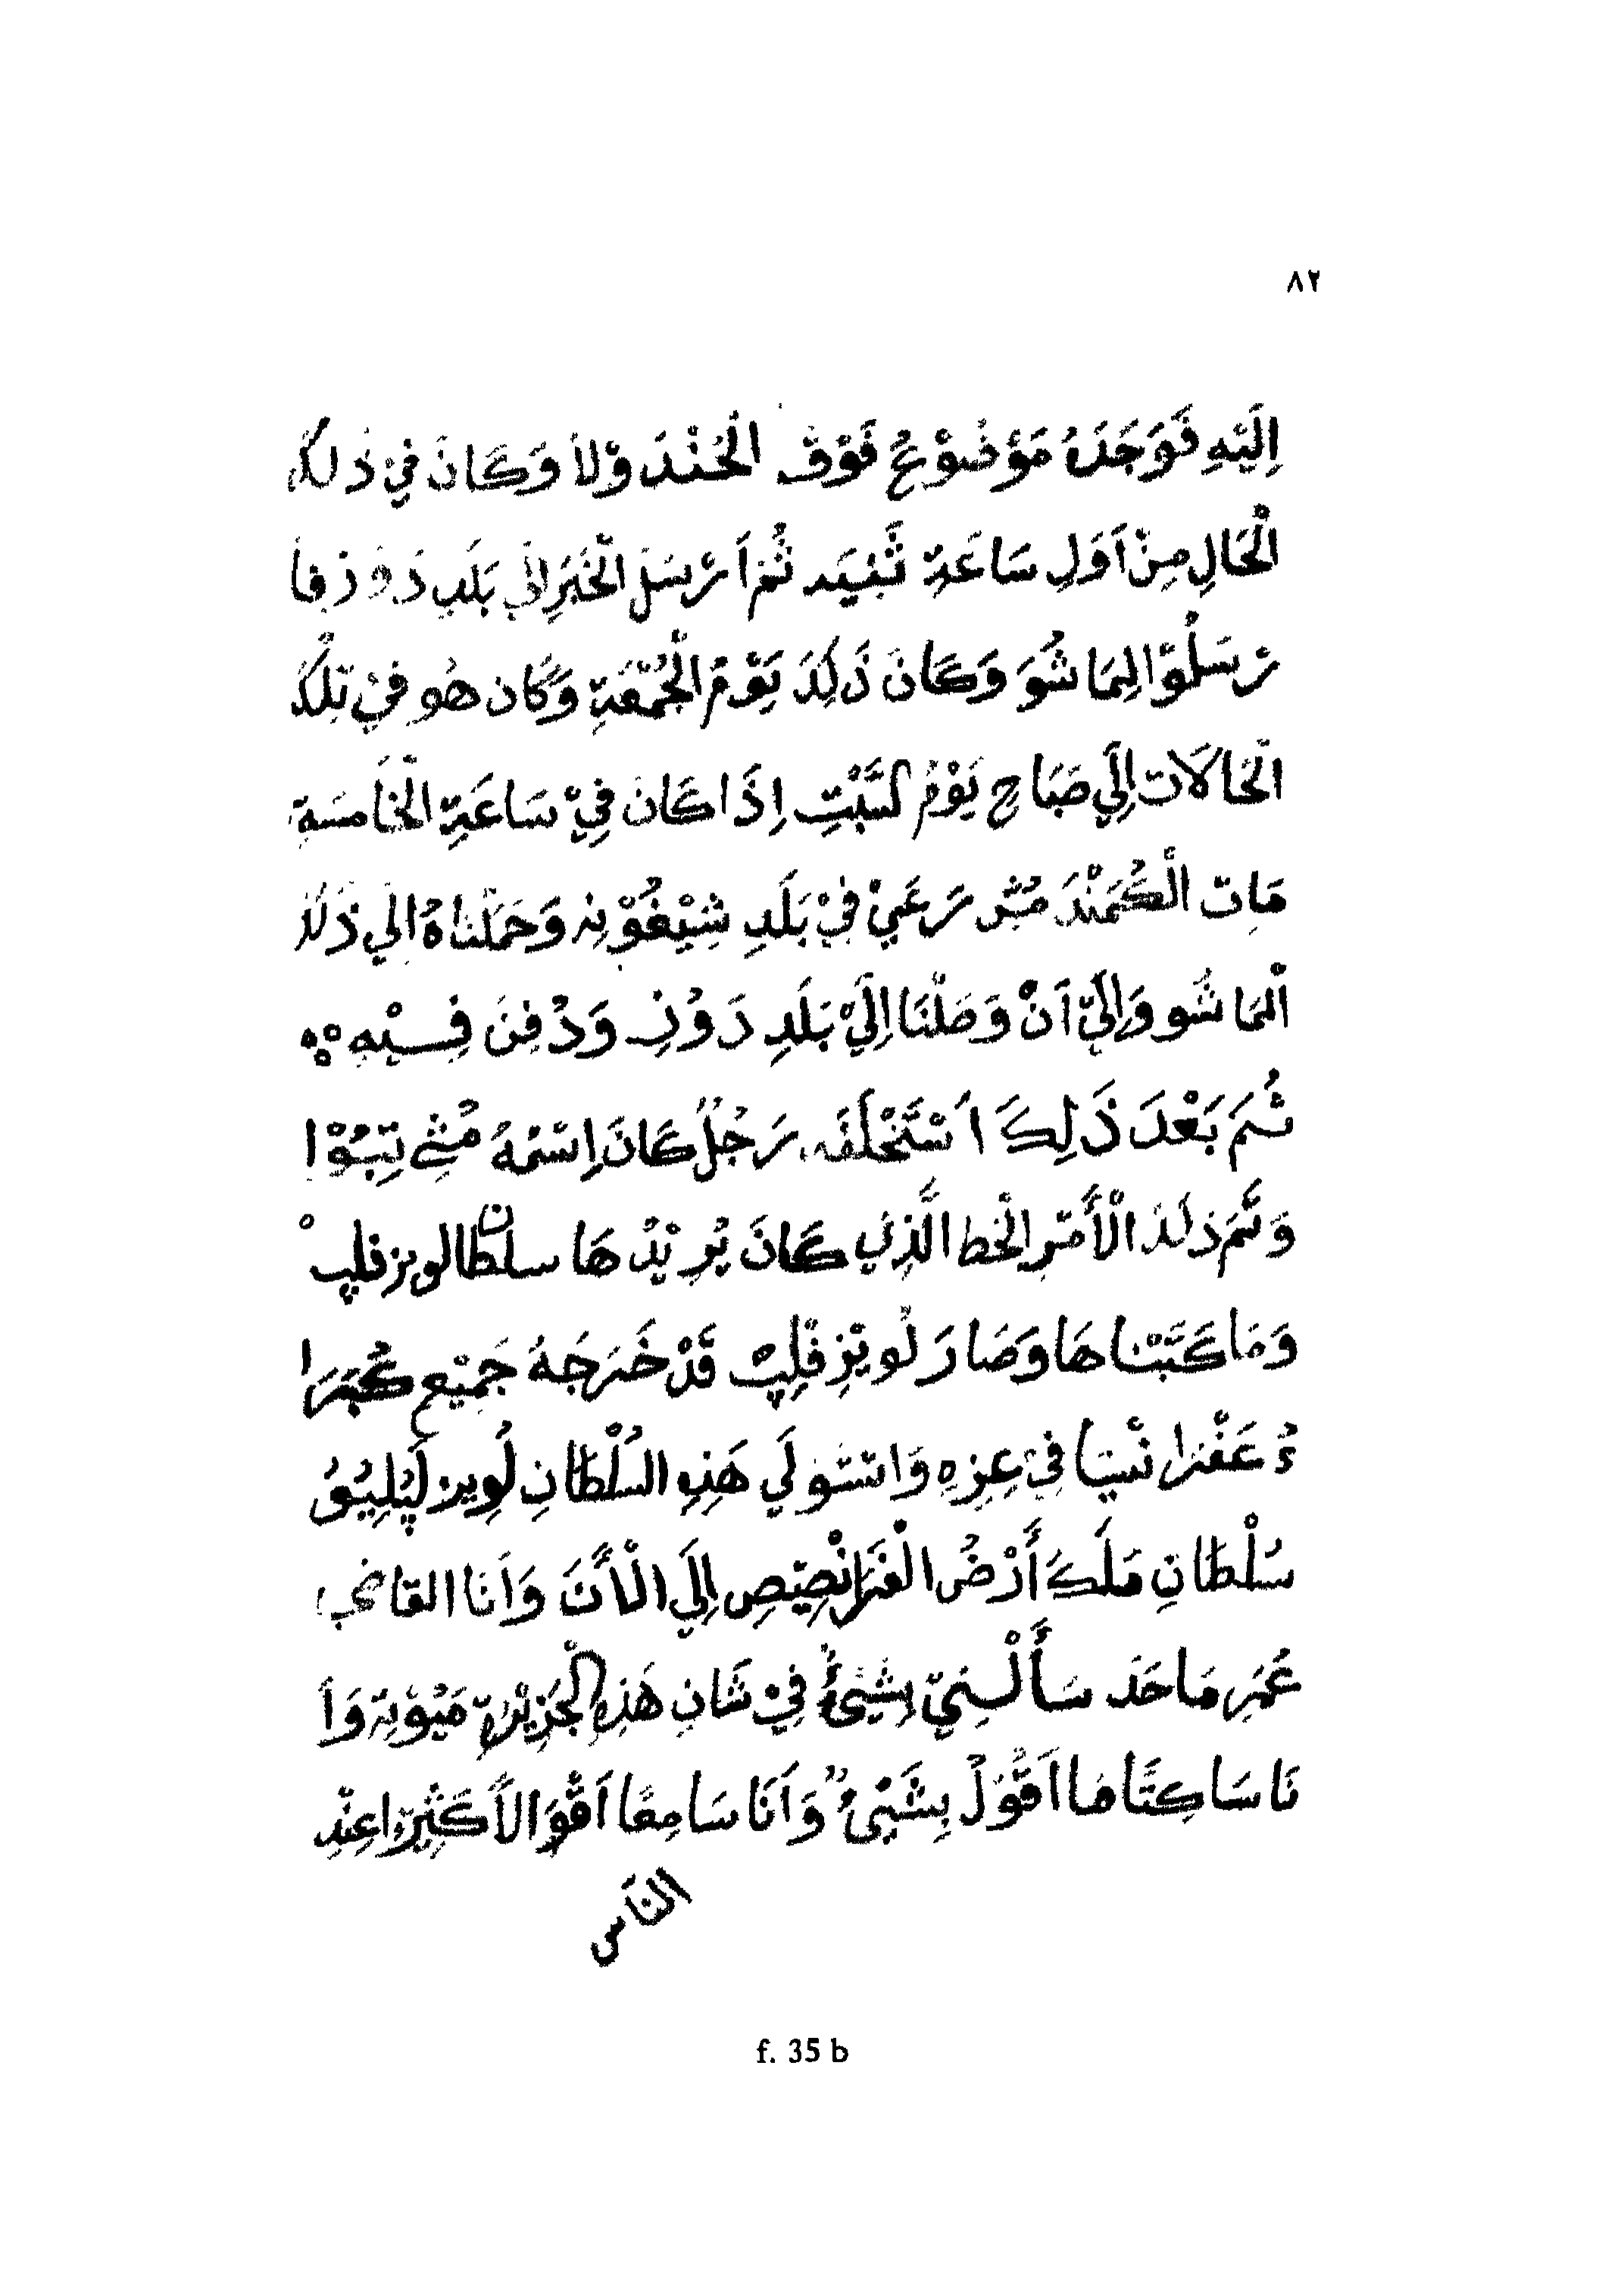 ٨٢
اِلَيْهِ فَوَجَدَهُ مَوْضُوْعُ فَوْقَ الْخُنْدَوْلاَ وَكَانَ فِيْ ذٰلِكَ
الْحَالِ مِنْ اَوَلِ سَاعَةِ ثُمَّ اَرْسَلَ الْخَبَرِ اِلَي بَلَدِ دَوُزِ فَا
رْسَلُوْا لِيمَاشُوَ وَكَانَ ذَلِكَ يَوْمُ الْجُمُعَةِ وَكَانَ هُوَ فِيْ تِلْكَ
الْحَالَاتِ اِلَي صَبَاحِ يَوْمُ لسَّبْتِ اِذَا كَانَ فِيْ سَاعَةِ الْخَامَسَةِ
مَاتَ الْكُمَنْدَ مُسْ رَعَيْ فِيْ بَلَدِ شِيْغُوْنِ وَحَمَلْنَاهُ اِلَي ذَلِكَ
الْمَاشُو وَاِلَيّ اَنْ وَصَلْنَا اِلَيْ بَلَدِ دَوُزِ وَدُفِنَ فِيْهِ
ثُمَ بَعْدَ ذَلِكَ اَسْتَخْلَفَه رَجُلٌ كَانَ اِسْمُهُ مُسْيِ تِبُوْا
وَتَمَ ذَلِكَ الْأَمْرِ الْخط الَّذِي كَانَ يُرِيْدُهَا سلطان لويز فليب
وَمَا كَتَبْنَاهَا وَصَارَ لُويْزِ فْلِيبْ قَدْ خَرَجَهُ جَمِيْعِ كُبَرَا
ءُ عَفْرَانْسِيَا فِيْ عِزِهِ وَاسْتَوْلَي هَذِهِ السُلْطَانِ لُوِيز نَپُلِيُوْنُ
سُلْطَانِ مَلَكَ أَرْضُ الْفَرَانْصِيْصِ اِلَي الْأَنَ وَاَنَا القاضي
عُمَرِ مَا حَدَ سَأَلْنِيْ بِشَيْءٌ فِيْ شَانِ هَذِهِ الْجَزِيْرَةِ مَيُوْتَة وَاَ
نَا سَاكِتًا مَا اَقُوْلُ بِشَيْءٌ وَاَنَا سَامِعًا اَقْوَالاً كَثِيْرًا عِنْدِ
النَاسِ
f. 35 b